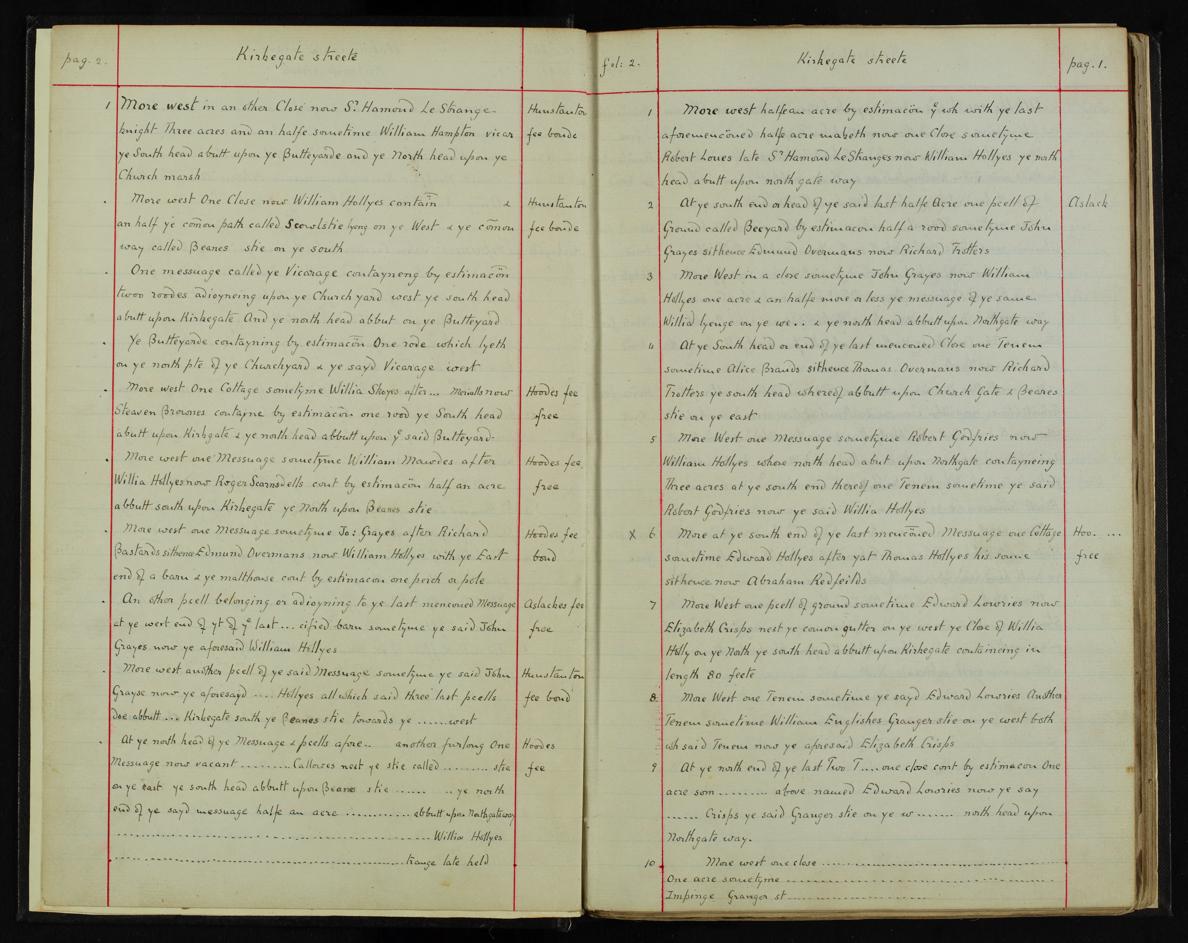 pag. 2. Kirkegate streete
1 More west in an other Close now Sr. Hamond Le Strange Hunstanton
knight Three acres and an halfe sometime William Hampton vicar fee bonde
ye South head abutt upon ye Butteyarde and ye North head upon ye
Church marsh
More west One Close now William Hollyes contain & Hunstanton
an half ye com̄on path called Scowlstie lyeng on ye West & ye com̄on fee bonde
way called Beanes stie on ye south
One messuage called ye Vicarage contayneng by estimacōn
twoo roodes adioyneing upon ye Church yard west ye south head
abutt upon Kirkegate And ye north head abbut on ye Butteyard
Ye Butteyarde contayning by estimacōn One rode which lyeth
on ye north pte of ye Churchyard & ye sayd Vicarage west
More west One Cottage sometyme Willia Skeyes after ... now Hoodes fee
Steaven Brownes contayne by estimacōn one rood ye South head free
abutt upon Kirkgate & ye north head abbutt upon ye said Butteyard
More west one Messuage sometyme William Mawdes after Hoodes fee
Willia Hollyes now Roger Scarnsdells cont by estimacōn half an acre free
abbutt south upon Kirkegate ye North upon Beanes stie
More west one Messuage sometyme Jo: Grayes after Richard Hoodes fee
Bastards sithence Edmund Overmans now William Hollyes with ye East bond
end of a barn & ye malthouse cont by estimacon one perch or pole
An other pcell belonging or adioyning to ye last menconed Messuage Aslackes fee
at ye west end of yt of ye last ... cified barn sometyme ye said John free
Grayes now ye aforesaid William Hollyes
More west another pcell of ye said Messuage sometyme ye said John Hunstanton
Grayse now ye aforesayd .... Hollyes all which said three last pcells fee bond
doe abbutt ... Kirkegate south ye Beanes stie towards ye ...... west
At ye north head of ye Messuage & pcells afore.. another furlong One Hoodes
Messuage now vacant .......... Callowes next ye stie called ......... stie fee
on ye east ye south head abbutt upon Beanes stie ...... .. ye north
end of ye sayd messuage halfe an acre ............ abbutt upon Northgateway
.......................................................... Willia Hollyes
.......................................................... trange late held
fol: 2. Kirkegate streete pag. 1.
1 More west halfe an acre by estimacōn ye wh with ye last
aforemencōned halfe acre maketh now one Close sometyme
Robert Loues late Sr Hamond LeStranges now William Hollyes ye north
head abutt upon north gate way
2 At ye south end or head of ye said last halfe Acre one pcell of Aslack
Ground called Beeyard by estimacon half a rood sometyme John
Grayes sithence Edmund Overmans now Richard Trotters
3 More West in a close sometyme John Grayes now William
Hollyes one acre & an halfe more or less ye messuage of ye same
Willia lyenge on ye we.. & ye north head abbutt upon Northgate way
4 At ye South head or end of ye last menconed Close one Tenem
sometime Alice Brands sithence Thomas Overmans now Richard
Trotters ye south head whereof abbutt upon Church Gate & Beanes
stie on ye east
5 More West one Messuage sometyme Robert Godfries now
William Hollyes whose north head abut upon Northgate contayneing
Three acres at ye south end thereof one Tenem sometime ye said
Robert Godfries now ye said Willia Hollyes
X 6 More at ye south end of ye last mencōned Messuage one Cottage Hoo. ...
sometime Edward Hollyes after yat Thomas Hollyes his sonne free
sithence now Abraham Redfeilds
7 More West one pcell of ground sometime Edward Lowries now
Elizabeth Crisps next ye comon gutter on ye west ye Close of Willia
Holly on ye North ye south head abbutt upon Kirkegate containeing in
length 80 feete
8 More West one Tenem sometime ye sayd Edward Lowries Another
Tenem sometime William Englishes Granger stie on ye west both
wh said Tenem now ye aforesaid Elizabeth Crisps
9 At ye north end of ye last Two T..... one close cont by estimacon One
acre som .......... above named Edward Lowries now ye say
...... Crisps ye said Granger stie on ye w ....... north head upon
Northgate way.
10 More west one close ..............................
One acre sometyme ..............................
Impinge Granger st ..............................